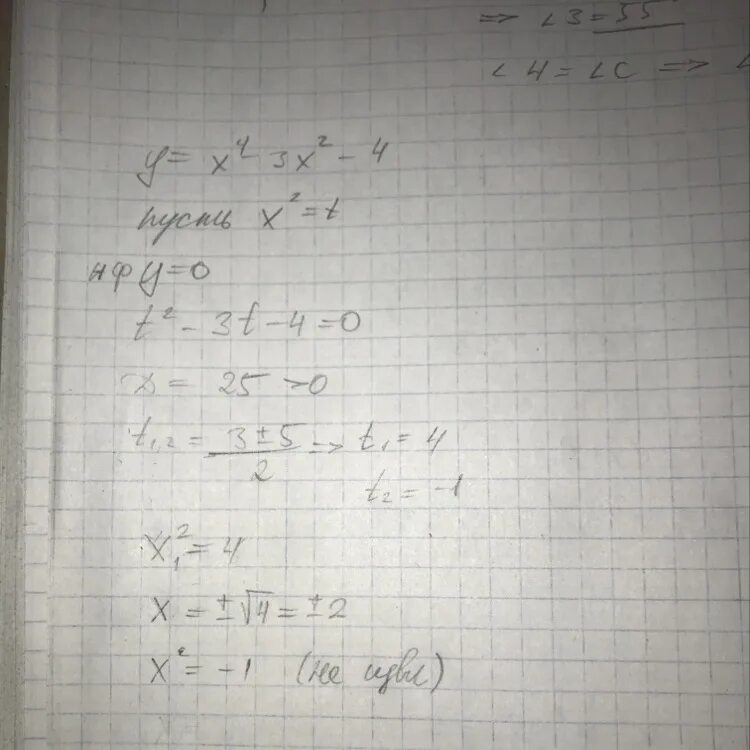 => ∠3 = 55
∠4 = ∠C => ∠
y = x⁴ 3x² - 4
пусть x² = t
нф y = 0
t² - 3t - 4 = 0
D = 25 > 0
t₁,₂ = 3 ± 5 / 2 => t₁ = 4
t₂ = -1
x₁² = 4
x = ± √4 = ± 2
x² = -1 (не извл)